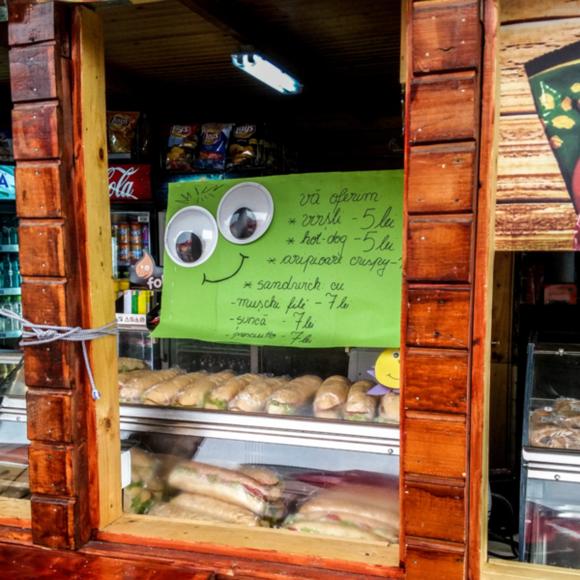 vă oferim
* vrsli - 5 lei
* hot-dog - 5 lei
* aripioare crispy -
* sandwich cu
- muschi file - 7 lei
- șuncă - 7 lei
- prosciutto - 7 lei
Cola
Lay's
fo